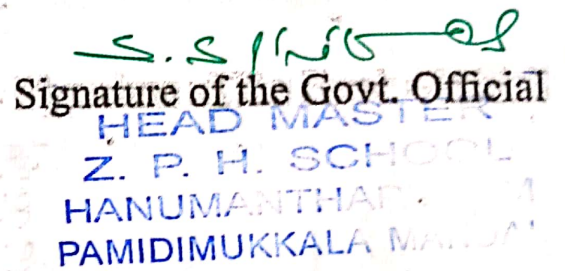 Signature of the Govt. Official
HEAD MASTER
Z. P. H. SCHOOL
PAMIDIMUKKALA